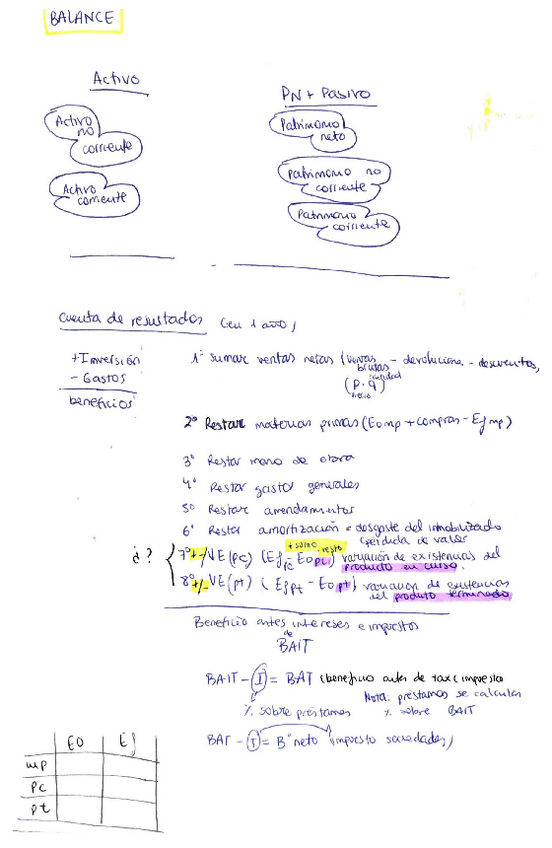 BALANCE
Activo
PN + Pasivo
Activo
no
corriente
Activo
corriente
Patrimonio
neto
Patrimonio no
corriente
Patrimonio
corriente
Cuenta de resultados (en 1 año)
+Inversión
- Gastos
beneficios
1º sumar ventas netas (ventas brutas - devoluciones - descuentos)
(P. q)
cantidad
2º Restar materias primas (Eomp + compras - Efmp)
3º Restar mano de obra
4º Restar gastos generales
5º Restar arrendamientos
6º Restar amortización = desgaste del inmobilizado
(pérdida de valor
¿?
+ sumo
resto
7º +/- VE(pc) (Efpc - Eopc) variación de existencias del
producto en curso.
8º +/- VE(pt) (Efpt - Eopt) variación de existencias
del producto terminado
Beneficio antes intereses e impuestos
de
BAIT
BAIT - I = BAT (beneficio antes de tax (impuesto
Nota: préstamos se calculan
% sobre préstamos
% sobre BAIT
BAT - I = Bº neto (impuesto sociedades)
Eo Ef
mp
pc
pt